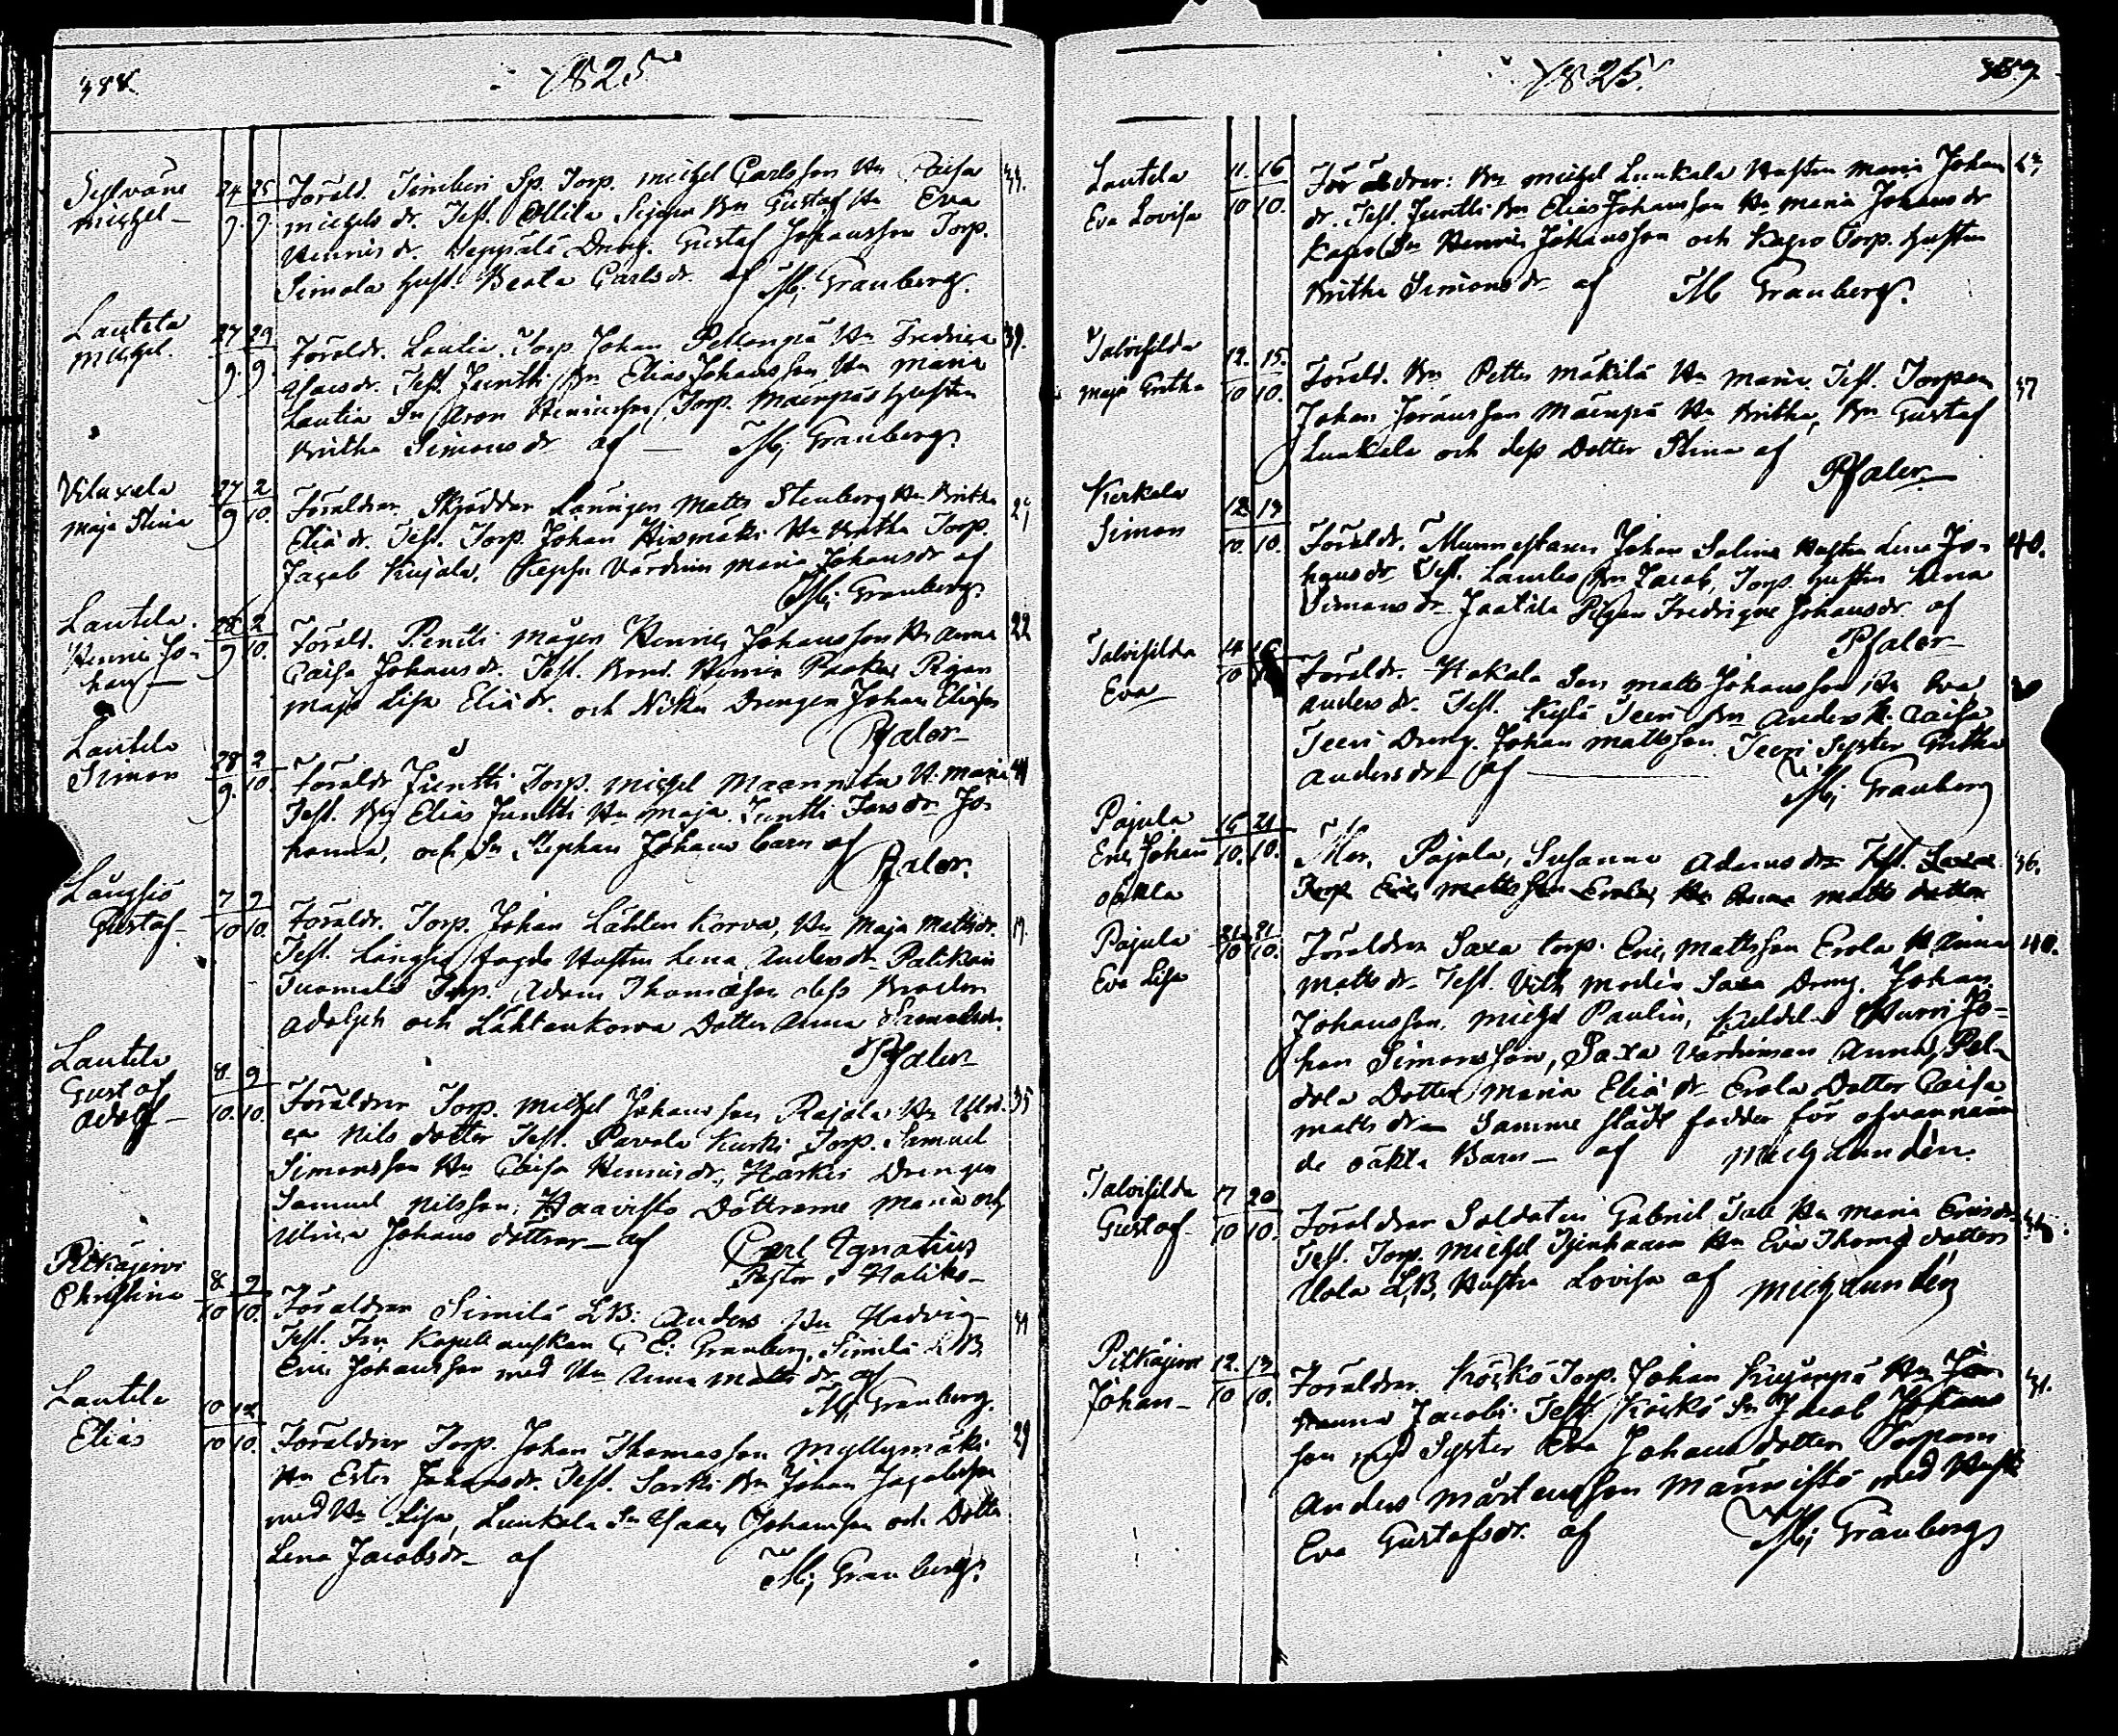 388.
1825
Sylvänä
Michel
24 25
9. 9.
Föräld. Simberi Sp. Torp. Michel Carlsson Hu Caisa
Michels dr. Test. Ollila Bn Gustaf Hu Eva
Henrics dr. Seppälä Dreng. Gustaf Johansson Torp.
Simola hust. Beata Carlsdr. af Mj Granberg.
Lautela
Michel.
27 29
9. 9.
39.
Föräldr. Lautia Torp. Johan Pellonpä Hu Fredrica
Isacsdr. Test. Juntti Bn Elias Johansson Hu Maria
Lautia Sn Aron Henricsson, Torp. Mäenpäs hustru
Britha Simonsdr af — Mj Granberg.
Maja Stina
27 2
9 10.
Föräldrar Skräddar Lärlingen Matts Stenberg Hu Britha
Eliä dr. Test. Torp. Johan Hu Britha Torp.
Jacob Kujala, Värdinn Maria Johansdr af
Mj Granberg.
Lautela.
Henric Jo-
han
28 2
9 10.
22
Föräld. Pentti mågen Henric Johansson Hu Anna
Caisa Johansdr. Test. Bond. Henric Pigan
Maja Lisa Eliädr. och Drengen Johan Eliasson
Pfaler
Lautela
Simon
28 2
9. 10.
Föräldr Juntti Torp. Michel Maannita H. Maria
Test. Bn Elias Juntti Hu Maja. Juntti dr Jo-
hanna, och Sn Stephan Johans barn af
Pfaler.
Långsjö
Gustaf
7 9
10 10.
Föräldr. Torp. Johan Lähten Korva, Hu Maja Mattsdr.
Test. Långsjö Hustru Lena Andersdr Palikais
Tuomela Torp. Adam Thomasson dess Broder
Adolph och Lähtenkorva Dotter Anna
Pfaler
Lautela
Gustaf
Adolf
8. 9
10. 10.
35
Föräldrar Torp. Michel Johansson Rajala Hu Ulri-
ca Nils dotter Test. Pavola Kurki Torp. Samuel
Simonsson Hu Caisa Henricsdr, Härki Drengen
Samuel Nilsson, Haavisto Döttrarne Maria och
Ulrica Johans döttrar af Carl Ignatius
Pastor i Haliko
Pitkäjerwi
Christina
8 9
10 10.
Föräldrar Similä LB: Anders Hu Hedvig
Test. Fru Kapellanskan C E: Granberg, Similä LB
Eric Johansson med Hu Anna Matts dr af
Mj Granberg.
Lautela
Elias
10 12
10 10.
29
Föräldrar Torp. Johan Thomasson Myllymäki
Hu Ester Johansdr. Test. Sarki Bn Johan Jacobsson
med Hu Lisa, Lunkala Sn Isaac Johansson och Dotter
Lena Jacobsdr af Mj Granberg.
1825.
389.
Lautela
Eva Lovisa
11. 16
10 10.
Föräldrar: Bn Michel Lunkala Hustru Maria Johans
dr. Test. Juntti Bn Elias Johansson Hu Maria Johansdr
Sn Henric Johansson och Torp. hustru
Britha Simonsdr af Mj Granberg.
Talvisilda
Maja Gretha
12. 15.
10 10.
37
Föräld. Bn Petter Mäkilä Hu Maria Test. Torparen
Johan Göransson Mäenpä Hu Britha, Bn Gustaf
Lunkala och dess Dotter Stina af
Pfaler
Kerkola
Simon
12 13
10. 10.
40.
Föräldr. Murmestaren Johan Salin Hustru Lena Jo-
hansdr Test. Bn Jacob, Torp. hustru Lena
Simonsdr Jaakila Pigan Fredrique Johansdr af
Pfaler
Talvisilda
Eva
14 16
10
Föräldr. Hakala Son Matts Johansson Hu Eva
Anders dr. Test. Kylä Teeri Bn Anders H. Caisa
Teeri Dreng. Johan Mattsson Teeri Syster Gretha
Andersdr af — Mj Granberg
Pajula
Eric Johan
oäkta
16 21
10. 10.
36.
Mor, Pajula, Susanna Adamsdr Test. Saxa
Torp Eric Mattsson Erola, Hu Anna Matts dotter
Pajula
Eva Lisa
21 21
10 10.
40.
Föräldrar Saxa torp. Eric Mattsson Erola H. Anna
Matts dr Test. Modin Saxa Dreng. Johan
Johansson, Michel Paulin, Jo-
han Simonsson, Saxa Värdinnan Anna, Pel-
dola Dotter Maria Eliä dr Erola Dotter Caisa
Matts dr Samme städt fadder för ofvannämn
de oäkta Barn af Mich Lundén.
Talvisilda
Gustaf
17 20
10 10.
Föräldrar Soldaten Gabriel Hu Maria Ericsdr
Test. Torp. Michel Hu Eva Thomas dotter
Uola LB, Hustru Lovisa af Mich Lundén
Pitkäjerwi
Johan
12. 13
10 10.
31.
Föräldrar Köykö Torp. Johan Kujanpä Hu Jo-
hanna Jacobi. Test. Köykö Sn Jacob Johans
son med Syster Eva Johans dotter Torparn
Anders Mårtensson Männistö med Hustr
Eva Gustafsdr. af Mj Granberg